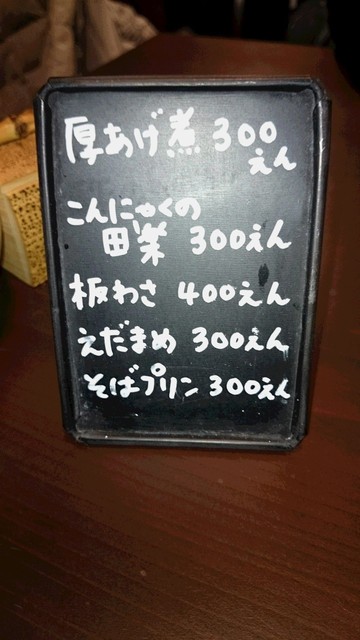 厚あげ煮 300
えん
こんにゃくの
田楽 300えん
板わさ 400えん
えだまめ 300えん
そばプリン 300えん